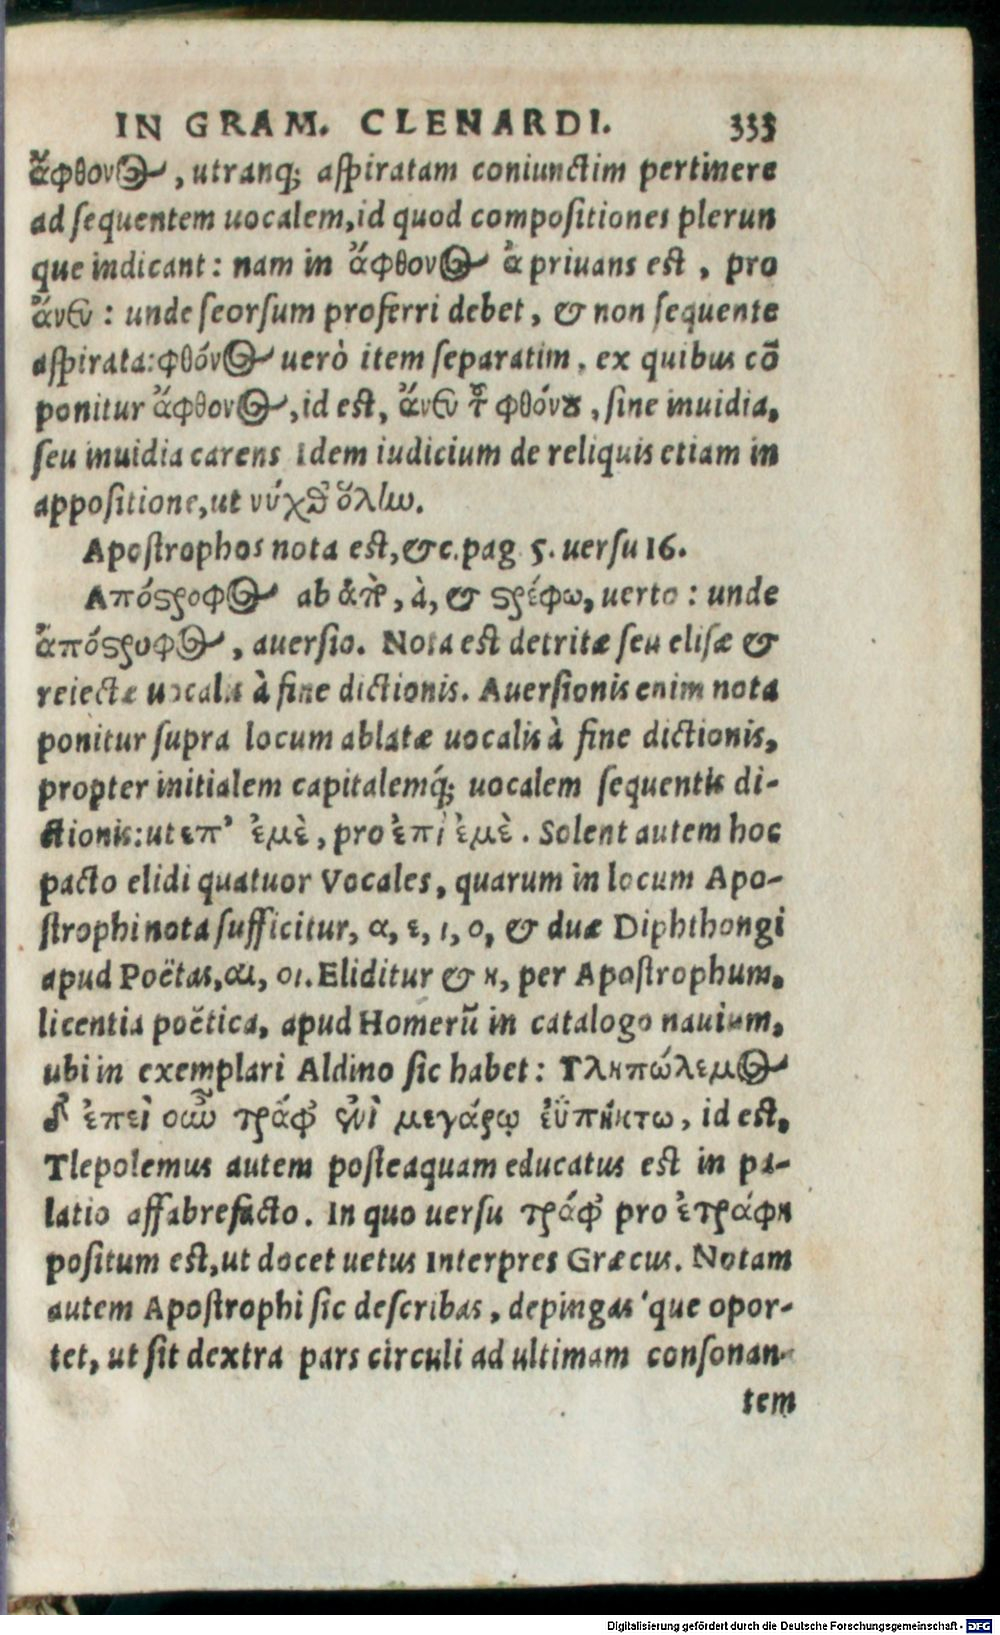 IN GRAM. CLENARDI. 333
ἄφθονος, utranq; aspiratam coniunctim pertinere
ad sequentem uocalem, id quod compositiones plerun
que indicant: nam in ἄφθονος ἀ priuans est, pro
ἄνευ: unde seorsum proferri debet, & non sequente
aspirata: φθόνος uerò item separatim, ex quibus cō
ponitur ἄφθονος, id est, ἄνευ τοῦ φθόνου, sine inuidia,
seu inuidia carens Idem iudicium de reliquis etiam in
appositione, ut νύχθ' ὅλην.
Apostrophos nota est, &c. pag 5. uersu 16.
Απόστροφος ab ἀπὸ, à, & στρέφω, uerto: unde
ἀπόστροφος, auersio. Nota est detritæ seu elisæ &
reiectæ uocalis à fine dictionis. Auersionis enim nota
ponitur supra locum ablatæ uocalis à fine dictionis,
propter initialem capitalemq́; uocalem sequentis di-
ctionis: ut επ' ἐμὲ, pro ἐπὶ ἐμὲ. Solent autem hoc
pacto elidi quatuor Vocales, quarum in locum Apo-
strophi nota sufficitur, α, ε, ι, ο, & duæ Diphthongi
apud Poëtas, αι, οι. Eliditur & η, per Apostrophum,
licentia poëtica, apud Homerū in catalogo nauium,
ubi in exemplari Aldino sic habet: Τληπώλεμος
δ' ἐπεὶ οὖν τράφ' ἐνὶ μεγάρῳ ἐϋπήκτω, id est,
Tlepolemus autem posteaquam educatus est in pa-
latio affabrefacto. In quo uersu τράφ' pro ἐτράφη
positum est, ut docet uetus Interpres Græcus. Notam
autem Apostrophi sic describas, depingas 'que opor-
tet, ut sit dextra pars circuli ad ultimam consonan-
tem
Digitalisierung gefördert durch die Deutsche Forschungsgemeinschaft - DFG